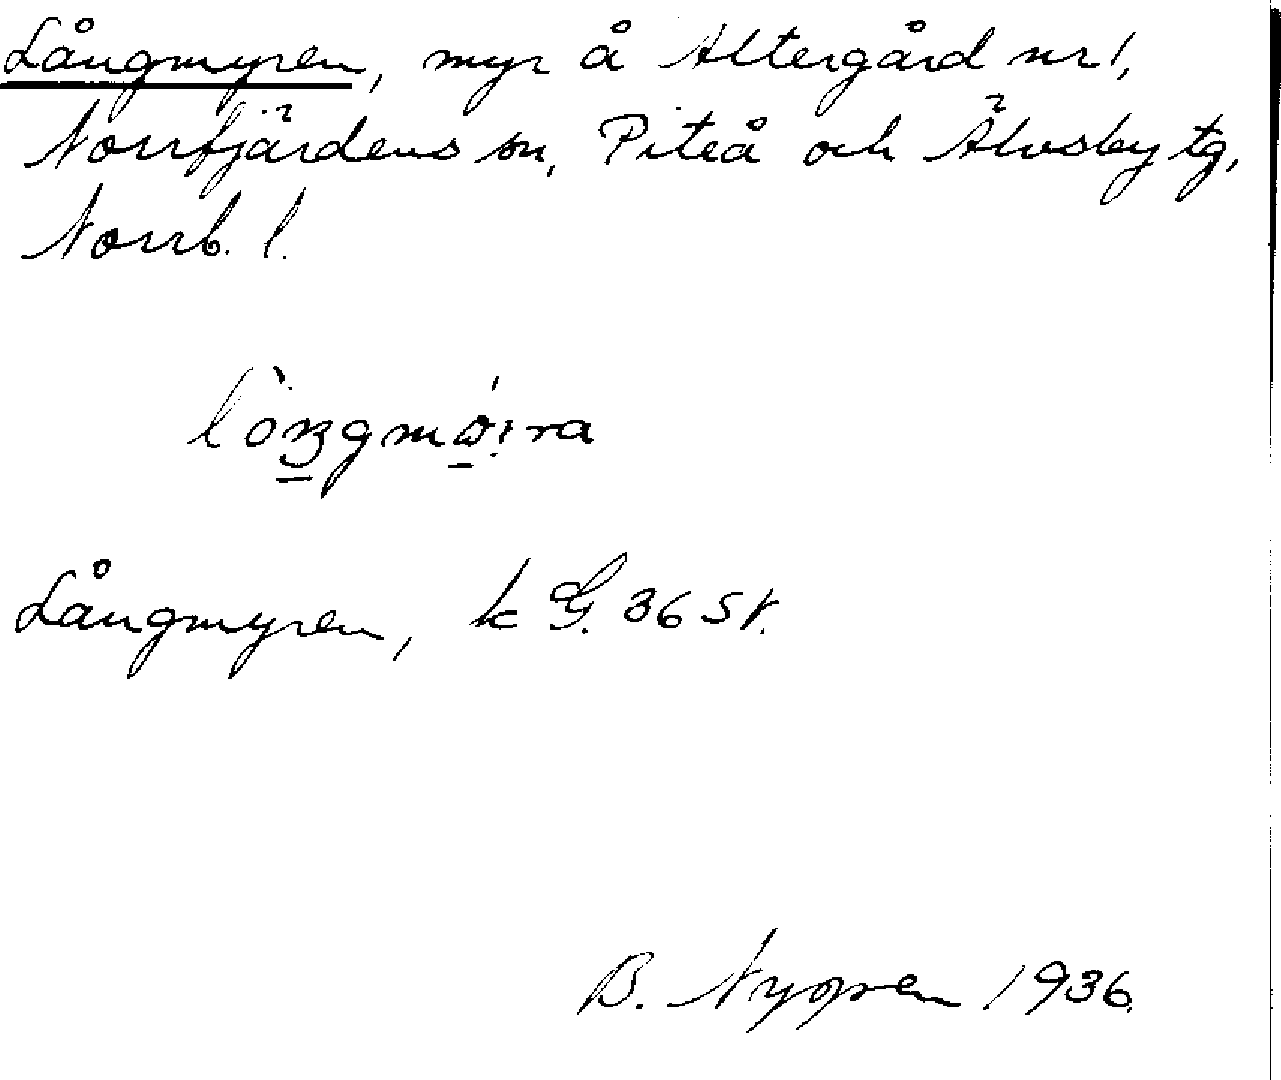 Långmyren, myr å Altergård nr 1,
Norrfjärdens sn, Piteå och Älvsby tg,
Norrb. l.
Långmyren, k G. 36 SV.
B. Nygren 1936